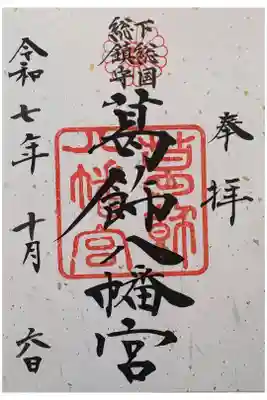 奉拝
下総国
総鎮守
葛飾八幡宮
令和七年十月六日